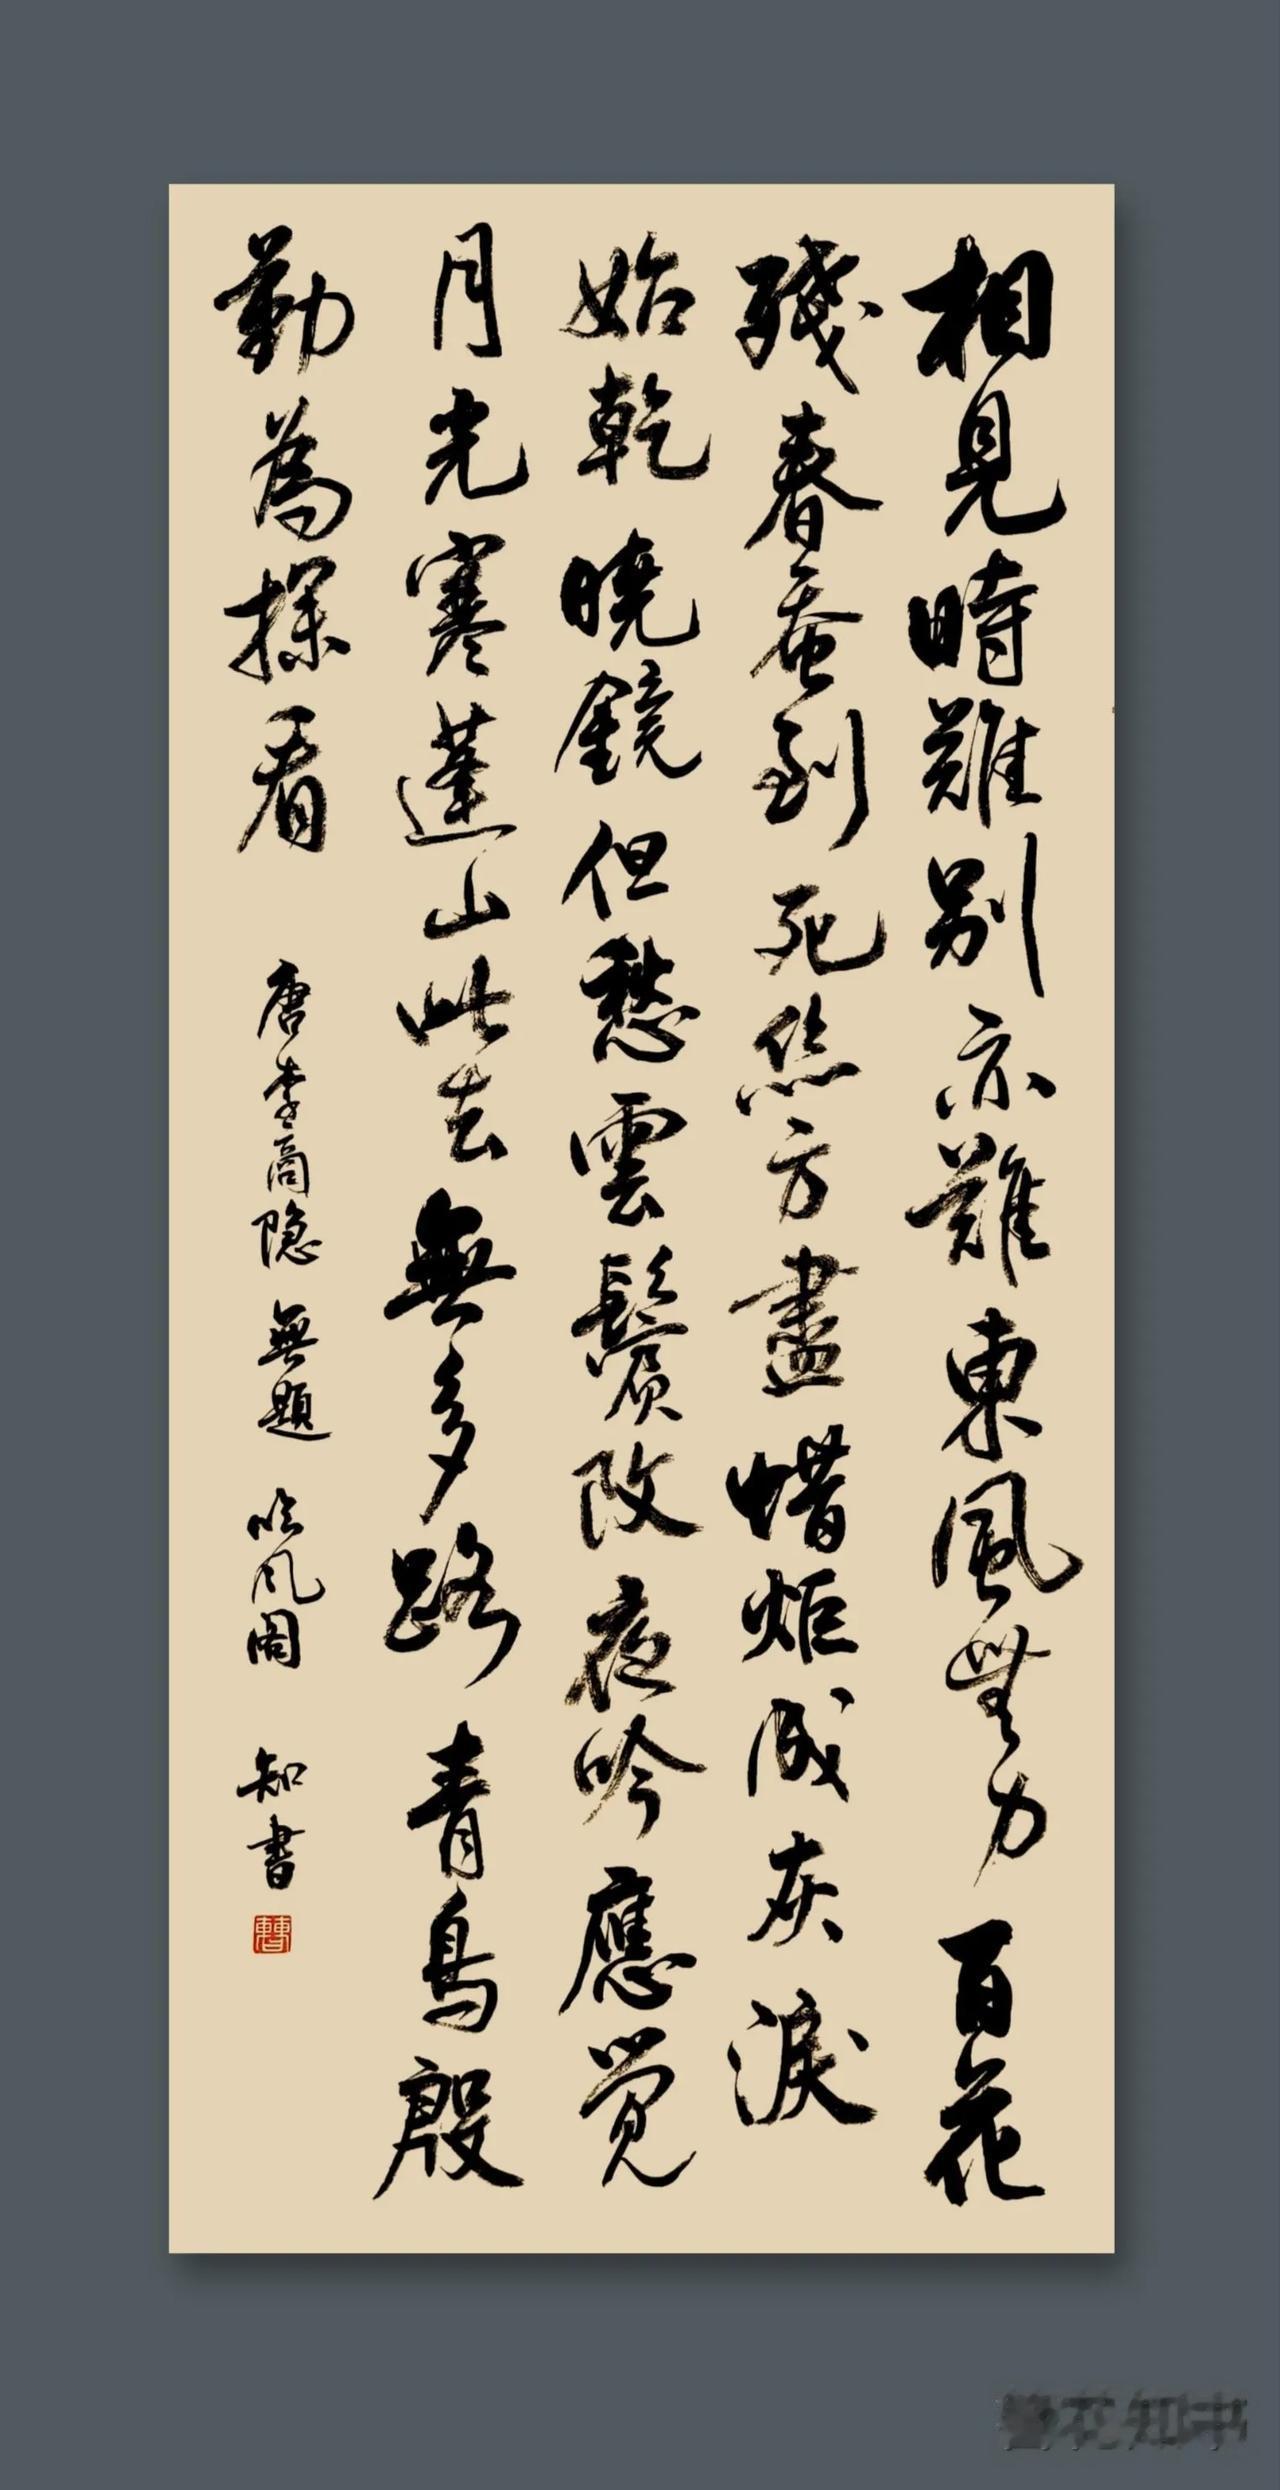 相見時難別亦難東風無力百花
殘春蚕到死絲方盡蜡炬成灰淚
始乾曉鏡但愁雲鬢改夜吟應觉
月光寒蓬山此去無多路青鳥殷
勤為探看
唐李商隐 無題 吟风阁 知書
花知书